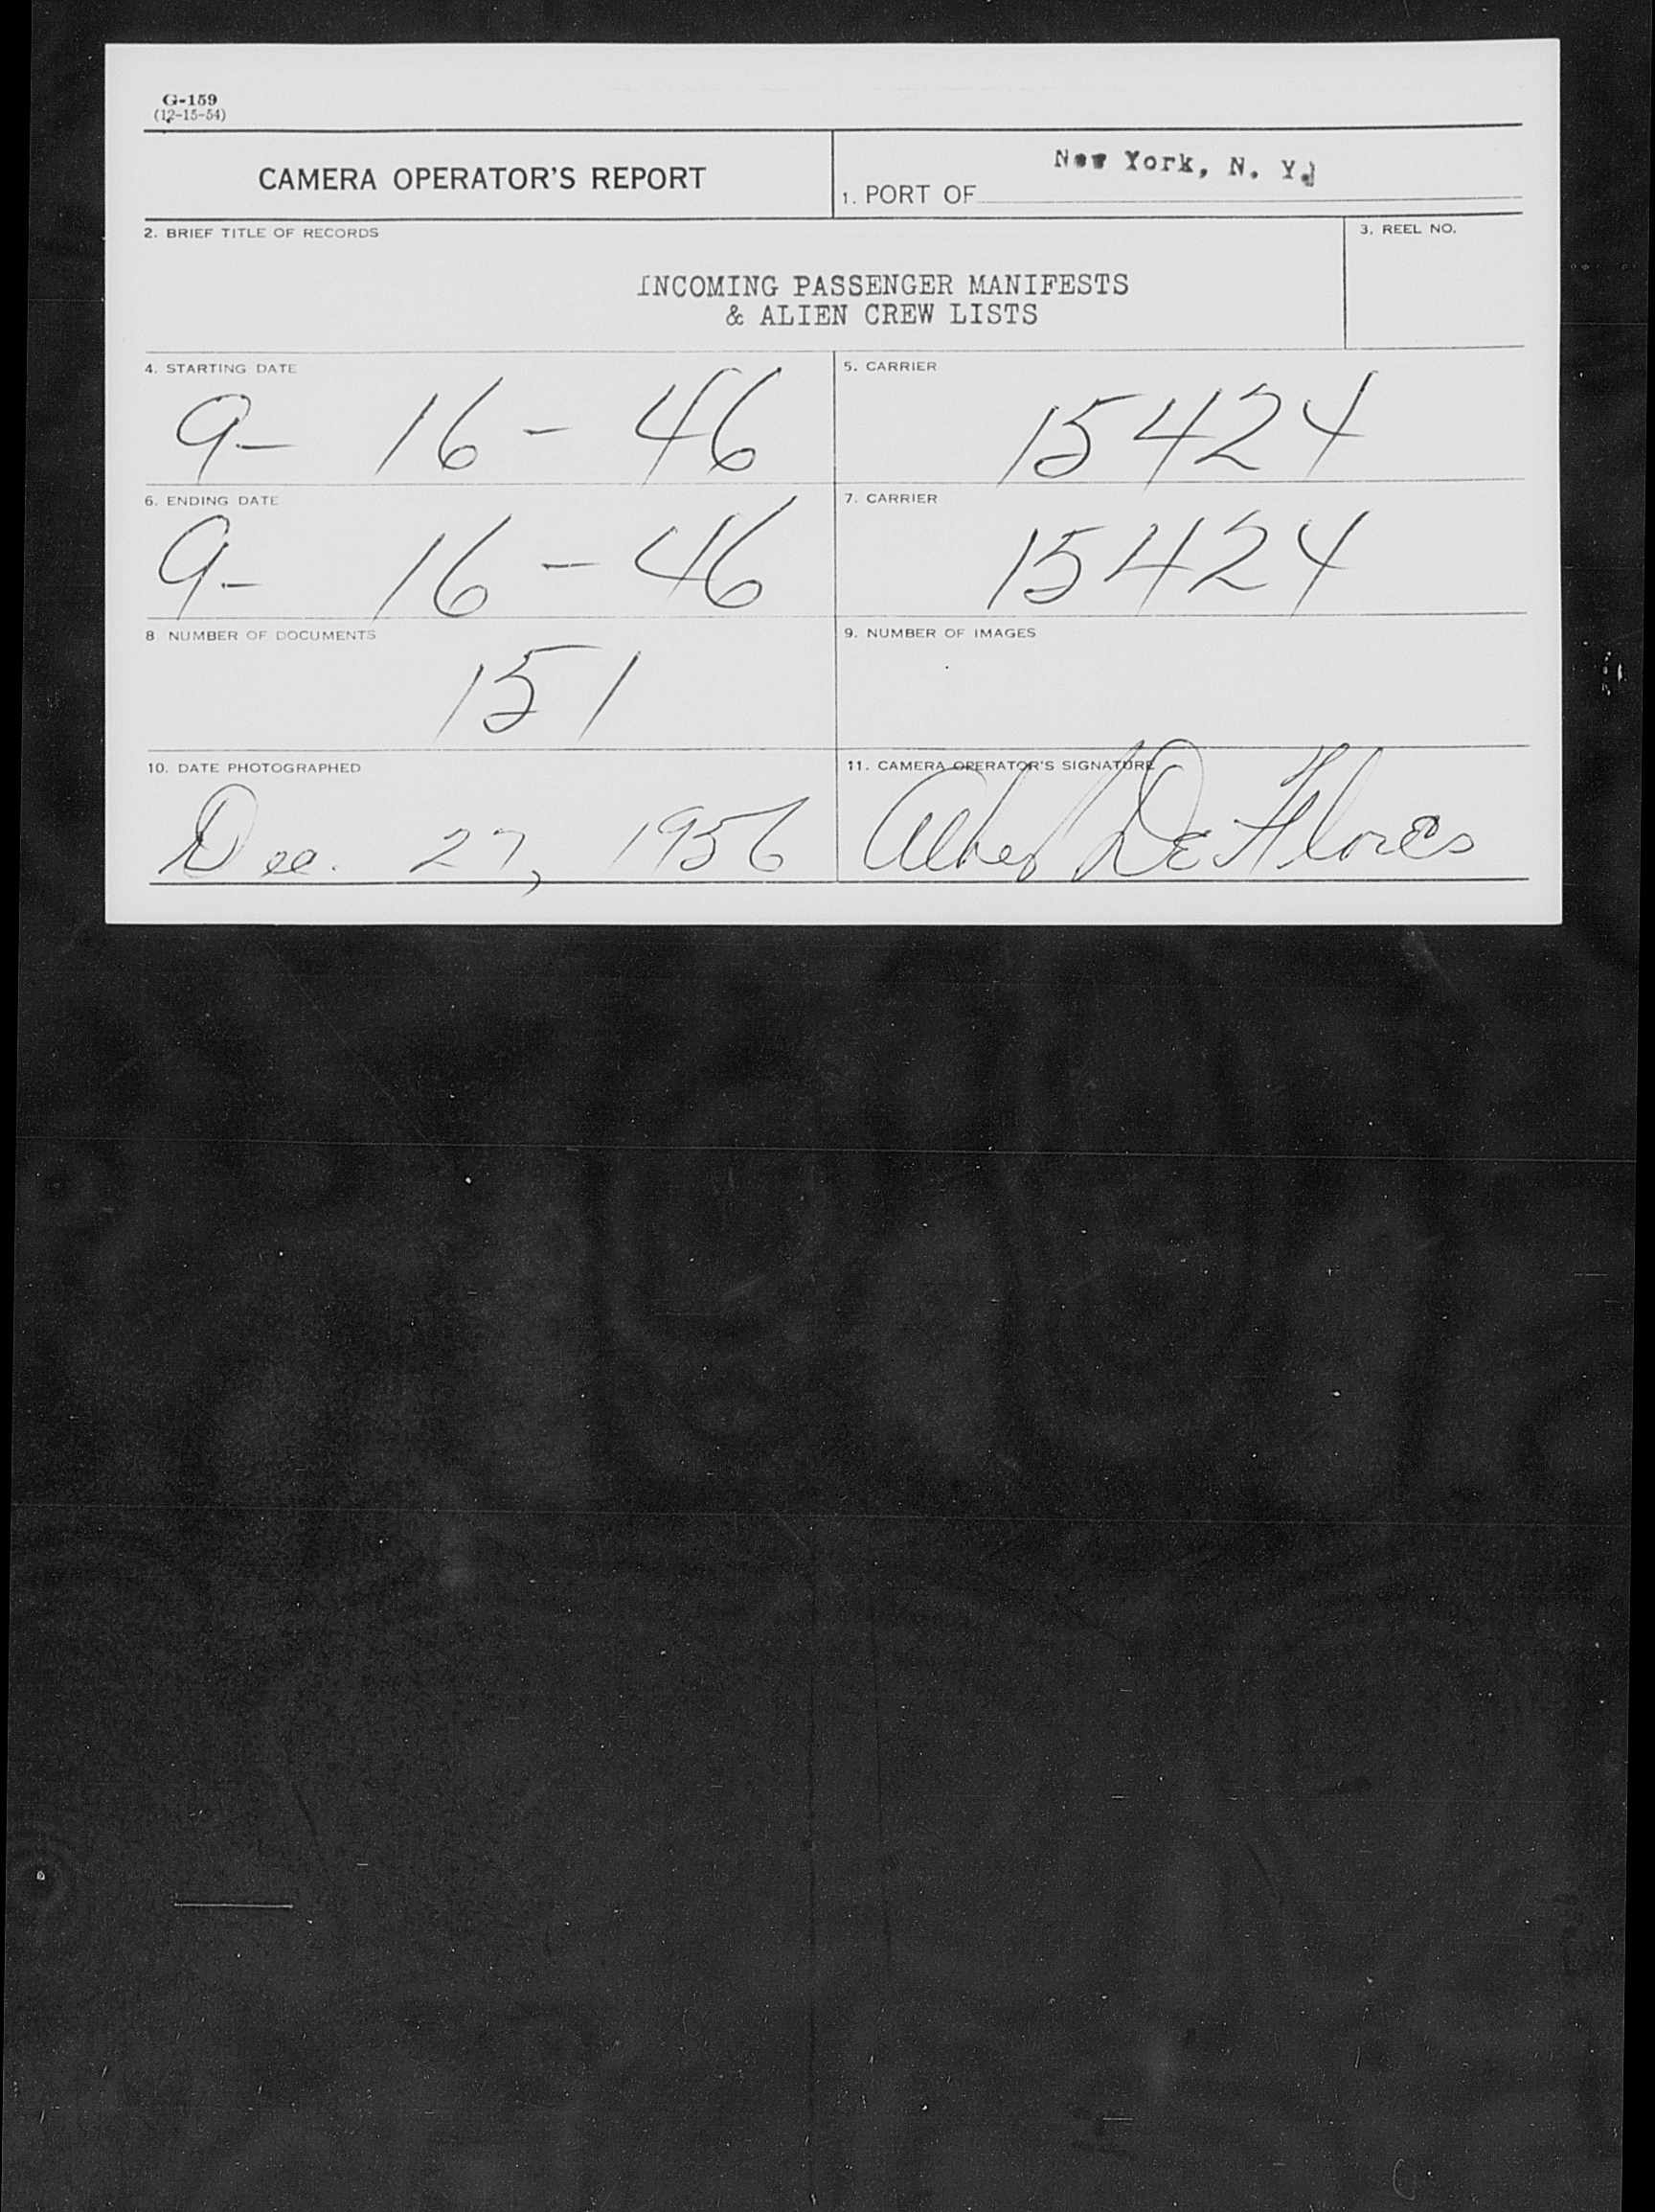 G-159
(12-15-54)
CAMERA OPERATOR'S REPORT
1. PORT OF New York, N. Y.
2. BRIEF TITLE OF RECORDS
3. REEL NO.
INCOMING PASSENGER MANIFESTS
& ALIEN CREW LISTS
4. STARTING DATE
9- 16-46
5. CARRIER
15424
6. ENDING DATE
9- 16-46
7. CARRIER
15424
8 NUMBER OF DOCUMENTS
151
9. NUMBER OF IMAGES
10. DATE PHOTOGRAPHED
Dec. 27, 1956
11. CAMERA OPERATOR'S SIGNATURE
De Flores